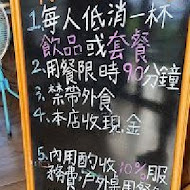 1.每人低消一杯
飲品或套餐
2.用餐限時90分鐘
3.禁帶外食
4.本店收現金
5.內用酌收10%服
務費,戶外用餐